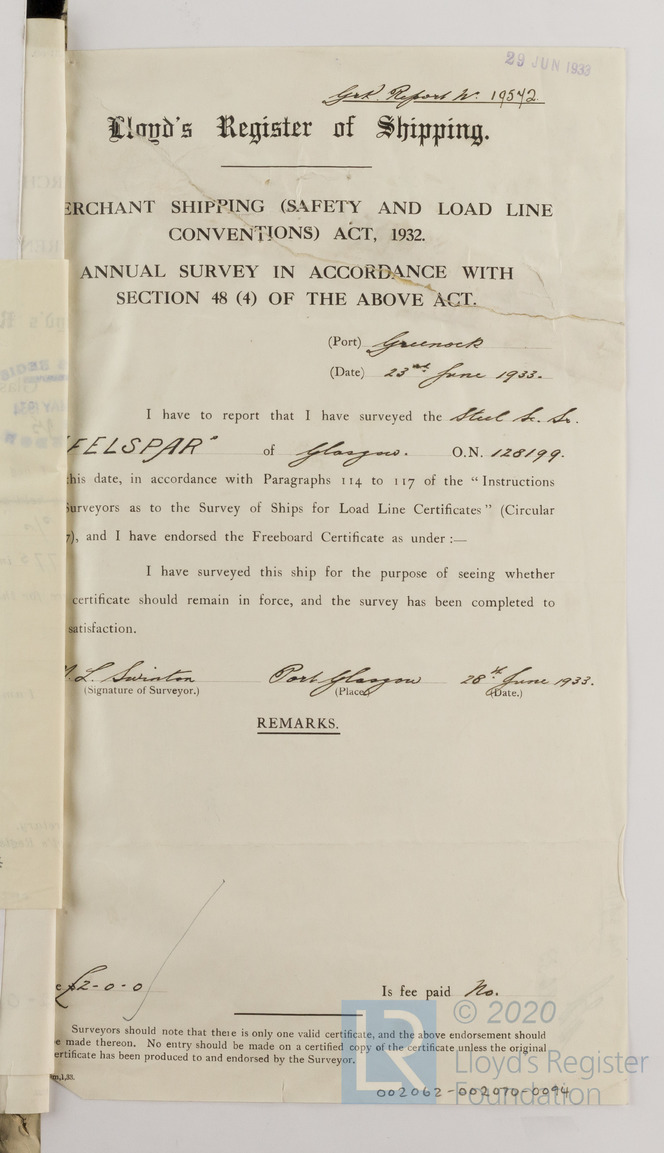 29 JUN 1933
Grk. Report No. 19542.
Lloyd's Register of Shipping.
ERCHANT SHIPPING (SAFETY AND LOAD LINE
CONVENTIONS) ACT, 1932.
ANNUAL SURVEY IN ACCORDANCE WITH
SECTION 48 (4) OF THE ABOVE ACT.
(Port) Greenock
(Date) 23rd. June 1933.
I have to report that I have surveyed the Steel Sc. Sr.
FELSPAR" of Glasgow. O.N. 128199.
his date, in accordance with Paragraphs 114 to 117 of the "Instructions
Surveyors as to the Survey of Ships for Load Line Certificates" (Circular
7), and I have endorsed the Freeboard Certificate as under :—
I have surveyed this ship for the purpose of seeing whether
certificate should remain in force, and the survey has been completed to
satisfaction.
L. Swinton Port Glasgow 28th. June 1933.
(Signature of Surveyor.) (Place) (Date.)
REMARKS.
e £2-0-0 Is fee paid No.
Surveyors should note that there is only one valid certificate, and the above endorsement should
e made thereon. No entry should be made on a certified copy of the certificate unless the original
ertificate has been produced to and endorsed by the Surveyor.
m,1,33.
© 2020
LR
Lloyd's Register
Foundation
002062-002070-0094